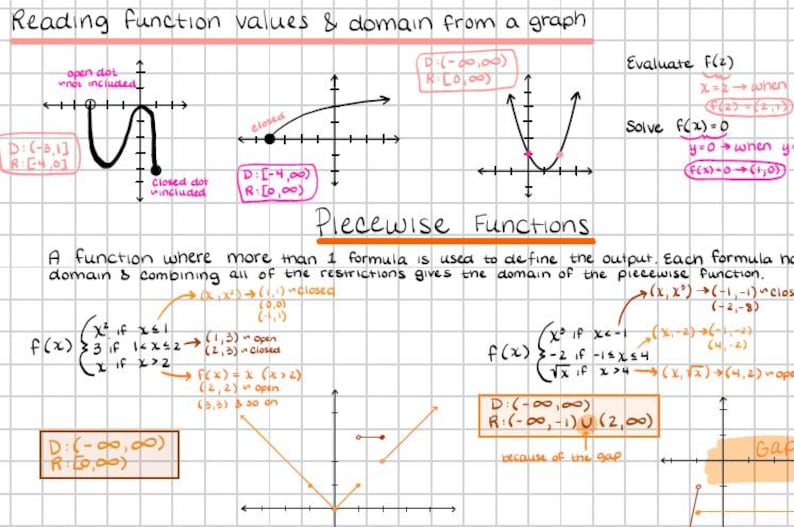 Reading function values & domain from a graph
open dot
not included
D:(-3,1]
R:[-4,0]
closed dot
included
closed
D:[-4,∞)
R:[0,∞)
D:(-∞,∞)
R:[0,∞)
Evaluate f(2)
x=2 → when
f(2)=(2,1)
Solve f(x)=0
y=0 → when y
f(x)=0 → (1,0)
Piecewise Functions
A function where more than 1 formula is used to define the output. Each formula
domain & combining all of the restrictions gives the domain of the piecewise function.
f(x) { x² if x≤1
3 if 1<x≤2
x if x>2
(x,x²) → (1,1) closed
(0,0)
(-1,1)
(1,3) open
(2,3) closed
f(x)=x (x>2)
(2,2) open
(3,3) & so on
D:(-∞,∞)
R:[0,∞)
f(x) { x³ if x<-1
-2 if -1≤x≤4
√x if x>4
(x,x³) → (-1,-1) clos
(-2,-8)
(x,-2) → (-1,-2)
(4,-2)
(x,√x) → (4,2) ope
D:(-∞,∞)
R:(-∞,-1) ∪ (2,∞)
because of the gap
Gap